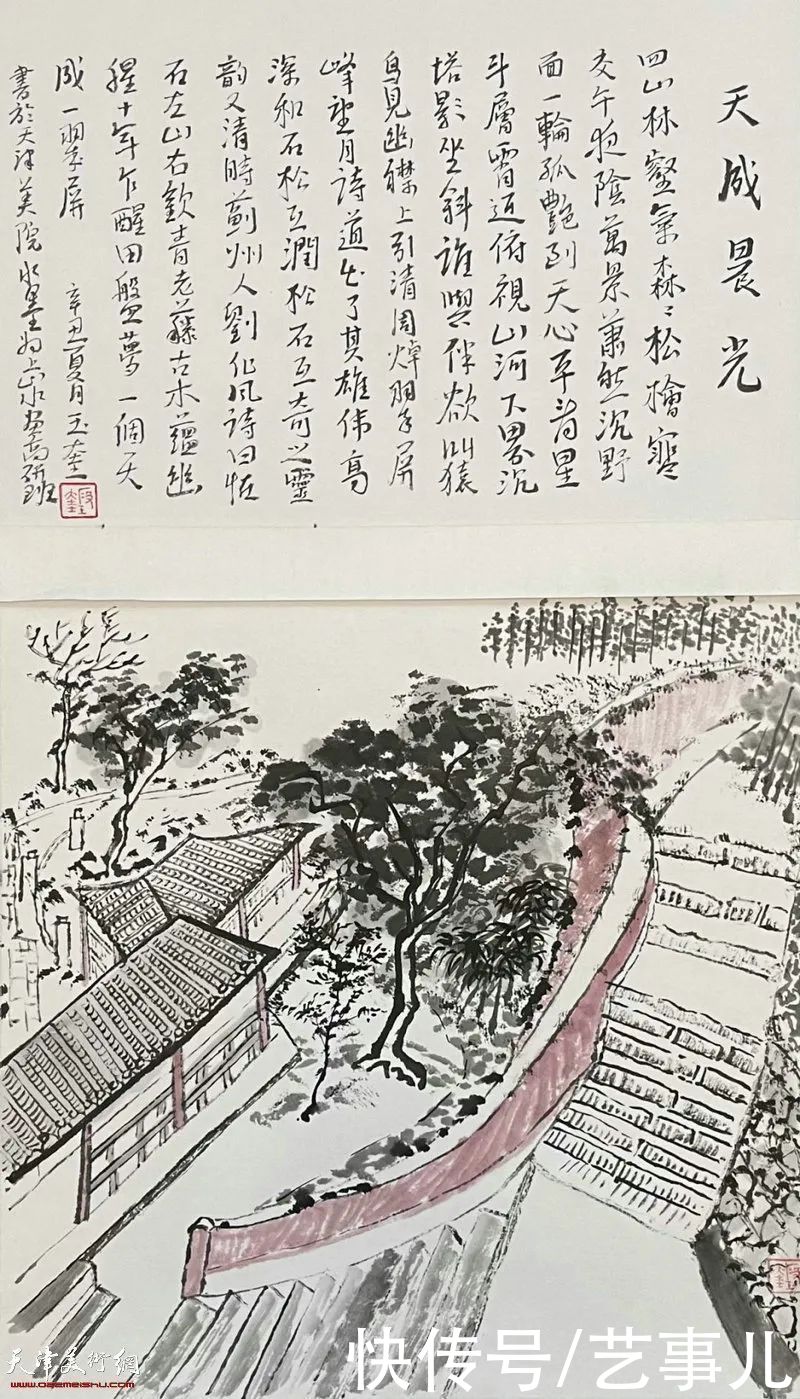 天成晨光
四山林壑氣森〻松檜寒
交午夜陰萬景蕭然沉野
面一輪孤艷到天心平看星
斗層霄近俯視山河下界沉
塔影坐斜誰與伴欲叫猿
鳥見幽襟上引清周焯翠屏
峰望月詩道出了其雄伟高
深和石松互潤松石互奇之靈
韵又清時薊州人劉化风詩曰怪
石左山右欹青老藤古木蘊幽
腥十年乍醒田盤夢一個天
成一翠屏 辛丑夏月玉奎
書於天津美院水墨为上畫高研班
天津美術網
快传号/艺事儿